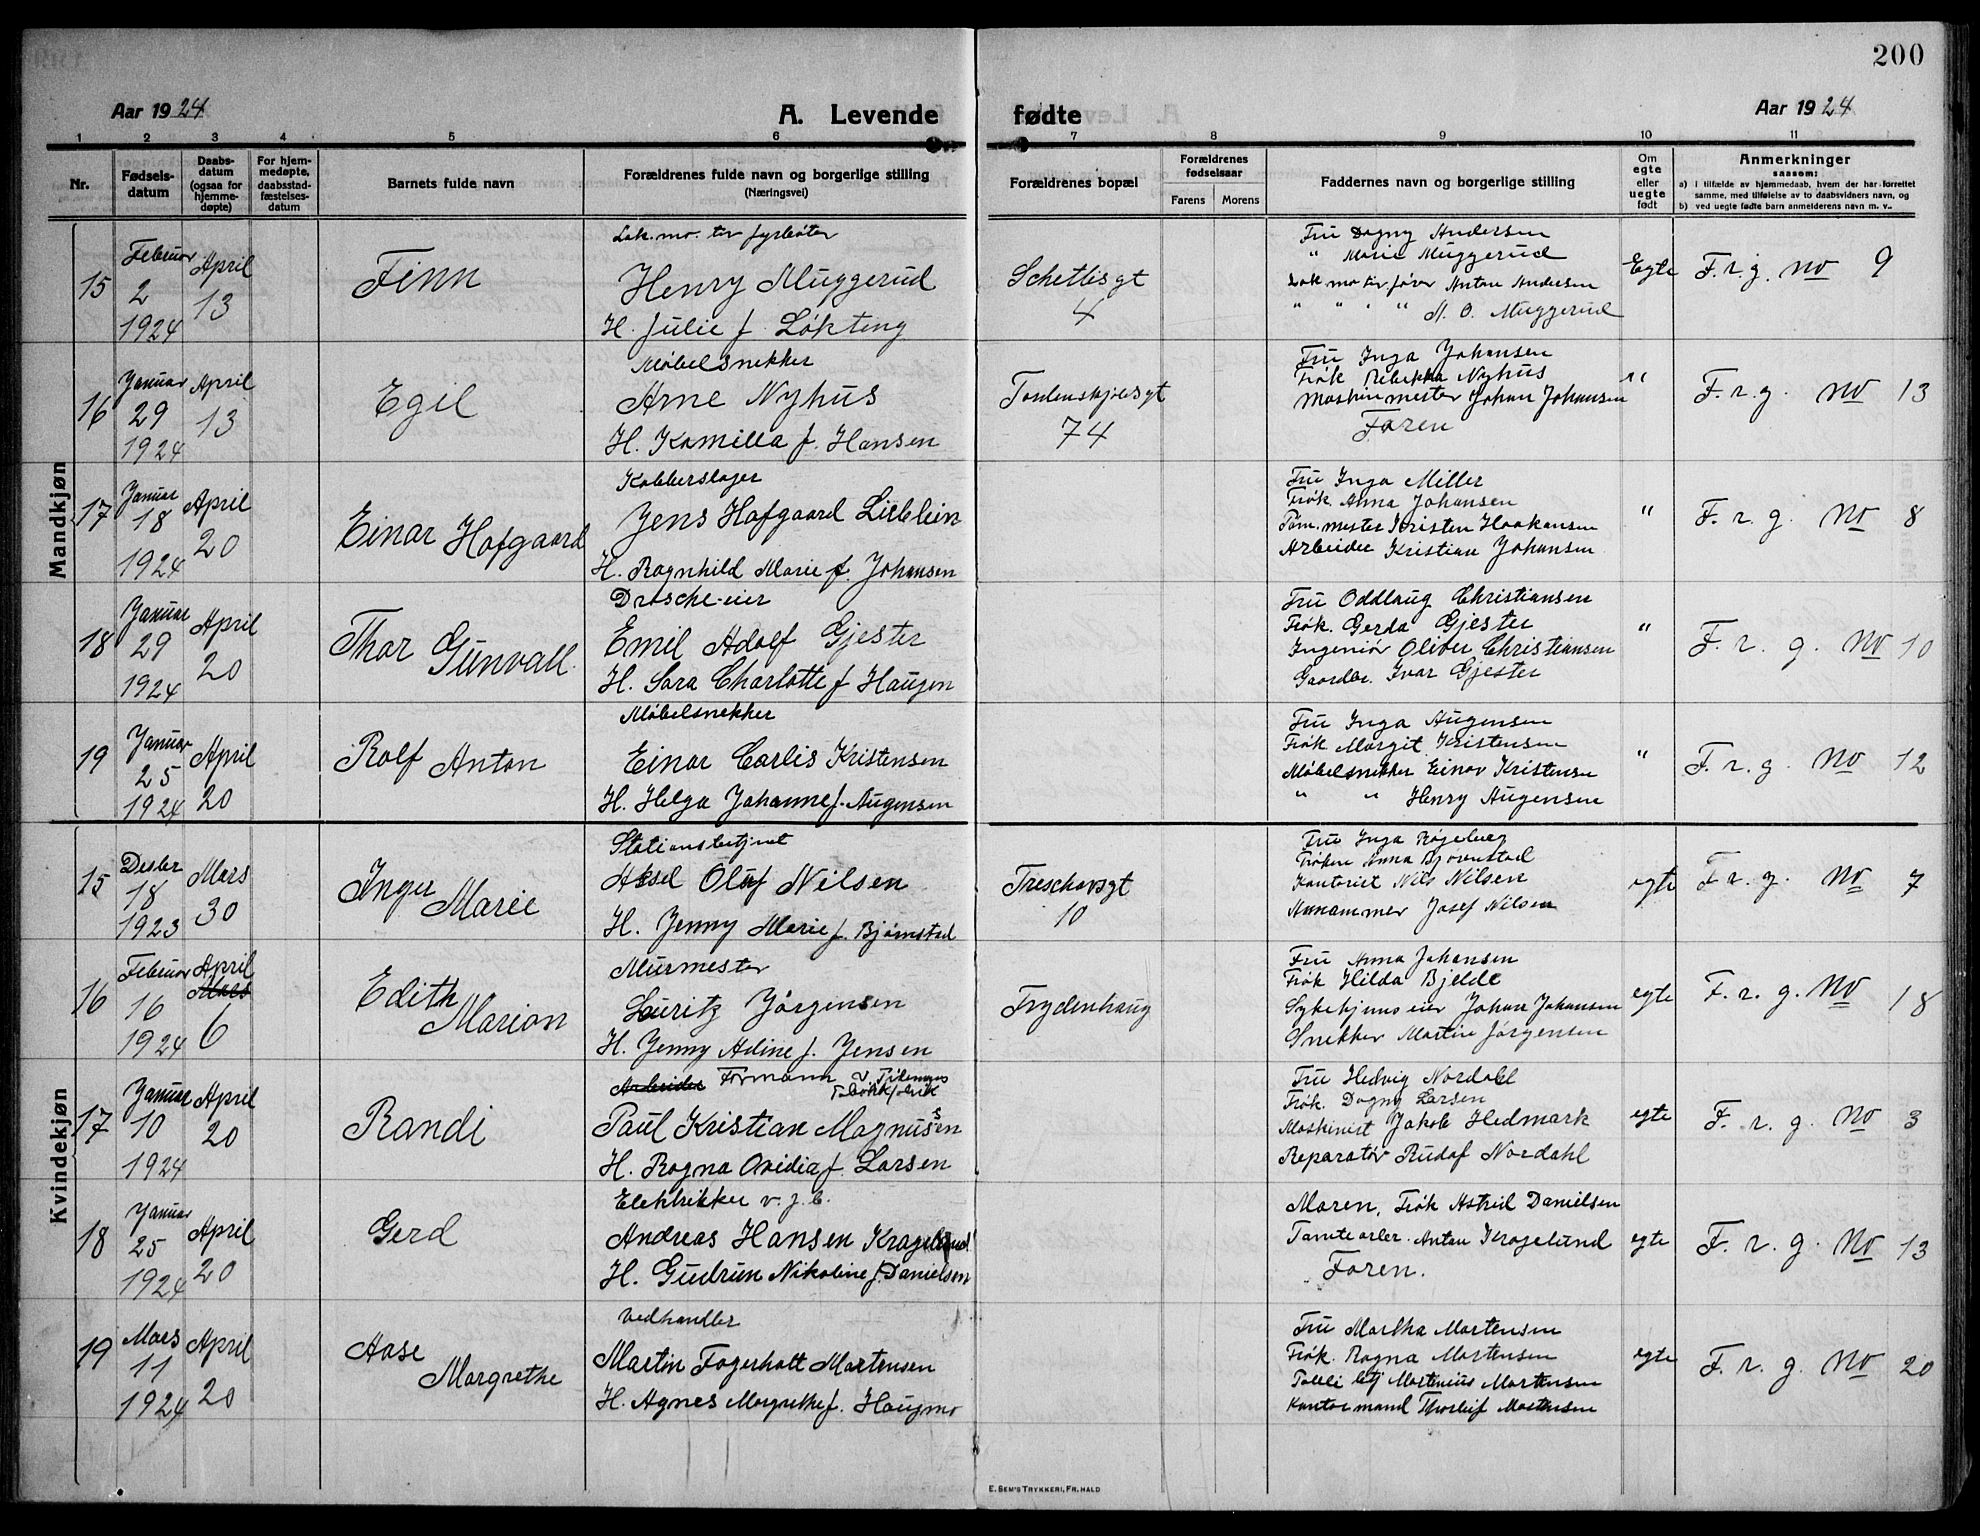 200
Aar 1924
A. Levende
fødte
Aar 1924
1 2 3 4 5 6 7 8 9 10 11
Nr.
Fødsels-
datum
Daabs-
datum
(ogsaa for
hjemme-
døpte)
For hjem-
medøpte,
daabsstad-
fæstelses-
datum
Barnets fulde navn
Forældrenes fulde navn og borgerlige stilling
(Næringsvei)
Forældrenes bopæl
Forældrenes
fødselsaar
Farens Morens
Faddernes navn og borgerlige stilling
Om
egte
eller
uegte
født
Anmerkninger
saasom:
a) i tilfælde av hjemmedaab, hvem der har forrettet
samme, med tilføielse av to daabsvidners navn, og
b) ved uegte fødte barn anmelderens navn m. v..
Mandkjøn
15
Februar
2
1924
April
13
Finn
Lok.mo. tiv fyrbøter
Henry Muggerud
H. Julie f. Løkteng
4
Fru Dagny Andersen
" Marie Muggerud
Lok mo tiv fører Anton Andersen
" " " " M. O. Muggerud
Egte
F. r. g. no 9
16
Januar
29
1924
April
13
Egil
Møbelsnekker
Arne Nyhus
H. Kamilla f. Hansen
Tordenskjolsgt
74
Fru Inga Johansen
Frøk Rebekka Nyhus
Maskinmester Johan Johansen
Faren
"
F. r. g. no 13
17
Januar
18
1924
April
20
Einar Hofgaard
Kobberslager
Jens Hofgaard Lislelien
H. Ragnhild Marie f. Johansen
Fru Inga Miller
Frøk Anna Johansen
Tøm.mester Kristen Haakansen
Arbeider Kristian Johansen
"
F. r. g. no 8
18
Januar
29
1924
April
20
Thor Gunvall.
Drosche-eier
Emil Adolf Gjester
H. Sara Charlotte f Haugen
Fru Oddlaug Christiansen
Frøk. Gerda Gjester
Ingeniør Oliver Christiansen
Gaardbr. Ivar Gjester
"
F. r. g. no 10
19
Januar
25
1924
April
20
Rolf Anton
Møbelsnekker
Einar Carlis Kristensen
H. Helga Johanne f. Augensen
Fru Inga Augensen
Frøk Margit Kristensen
Møbelsnekker Einar Kristense
" " Henry Augensen
"
F. r. g. no 12
Kvindekjøn
15
Desbr
18
1923
Mars
30
Inger Marie
Stationsbetjent
Aksel Olaf Nilsen
H. Jenny Marie f. Bjørnstad
Treschowsgt
10
Fru Inga
Frøken Anna Bjørnstad
Kontorist Nils Nilsen
Josef Nilsen
egte
F. r. g. no 7
16
Februar
16
1924
April
Mars
6
Edith Marion
Murmester
Lauritz Jørgensen
H. Jenny Adine f. Jensen
Frydenhaug
Fru Anna Johansen
Frøk Hilda Bjelde
Johan Johansen
Snekker Martin Jørgensen
egte
F. r. g. no 18
17
Januar
10
1924
April
20
Randi
Arbeider Formann v.
Paul Kristian Magnussen
H. Ragna Ovidia f. Larsen
Fru Hedvig Nordahl
Frøk. Dagny Larsen
Maskinist Jakob Hedmark
Reparatør Rudolf Nordahl
egte
F. r. g. no 3
18
Januar
25
1924
April
20
Gerd
Elektrikker v. j. b.
Andreas Hansen Kragelund
H. Gudrun Nikoline f. Danielsen
Moren, Frøk Astrid Danielsen
Anton Kragelund
Faren.
egte
F. r. g. no 13
19
Mars
11
1924
April
20
Aase Margrethe
Vedhandler
Martin Fagerholt Martensen
H. Agnes Margrethe f. Haugmo
Fru Martha Martensen
Frøk. Ragna Martensen
Martinius Martensen
Kontormand Thorleif Martensen
egte
F. r. g. no 20
E. SEM'S TRYKKERI, FR. HALD